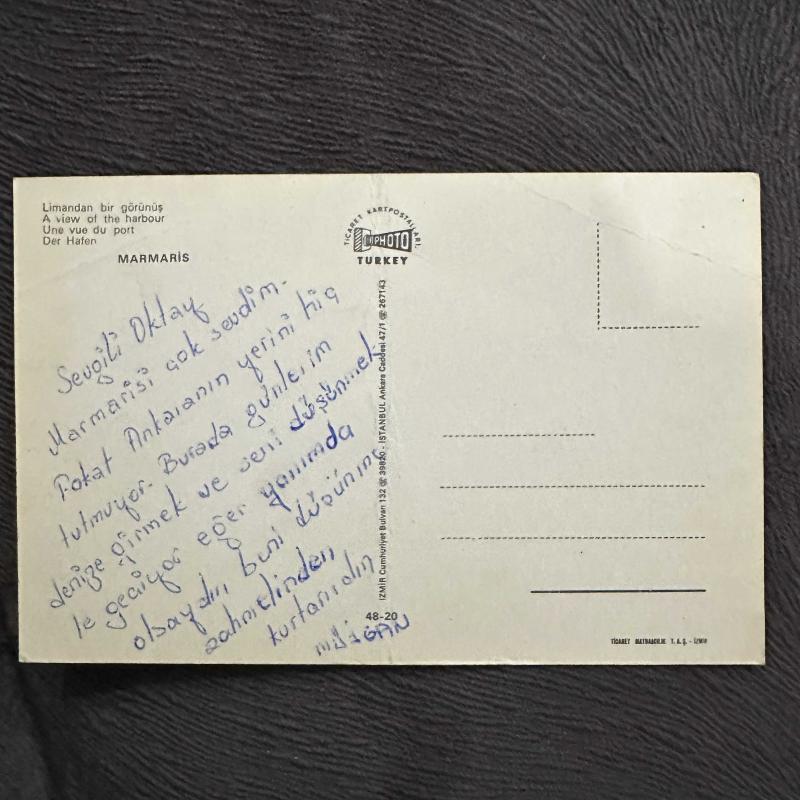 Limandan bir görünüş
A view of the harbour
Une vue du port
Der Hafen
MARMARİS
TİCARET KARTPOSTALLARI.
PHOTO
TURKEY
Sevgili Oktay
Marmarisi çok sevdim.
Fakat Ankaranın yerini hiç
tutmuyor. Burada günlerim
denize girmek ve seni düşünmek
le geçiyor eğer yanımda
olsaydın beni düşünme
zahmetinden
kurtarırdın
İZMİR Cumhuriyet Bulvarı 132 ☎ 39820 - İSTANBUL Ankara Caddesi 47/1 ☎ 267143
48-20
TİCARET MATBAACILIK T. A. Ş. - İZMİR